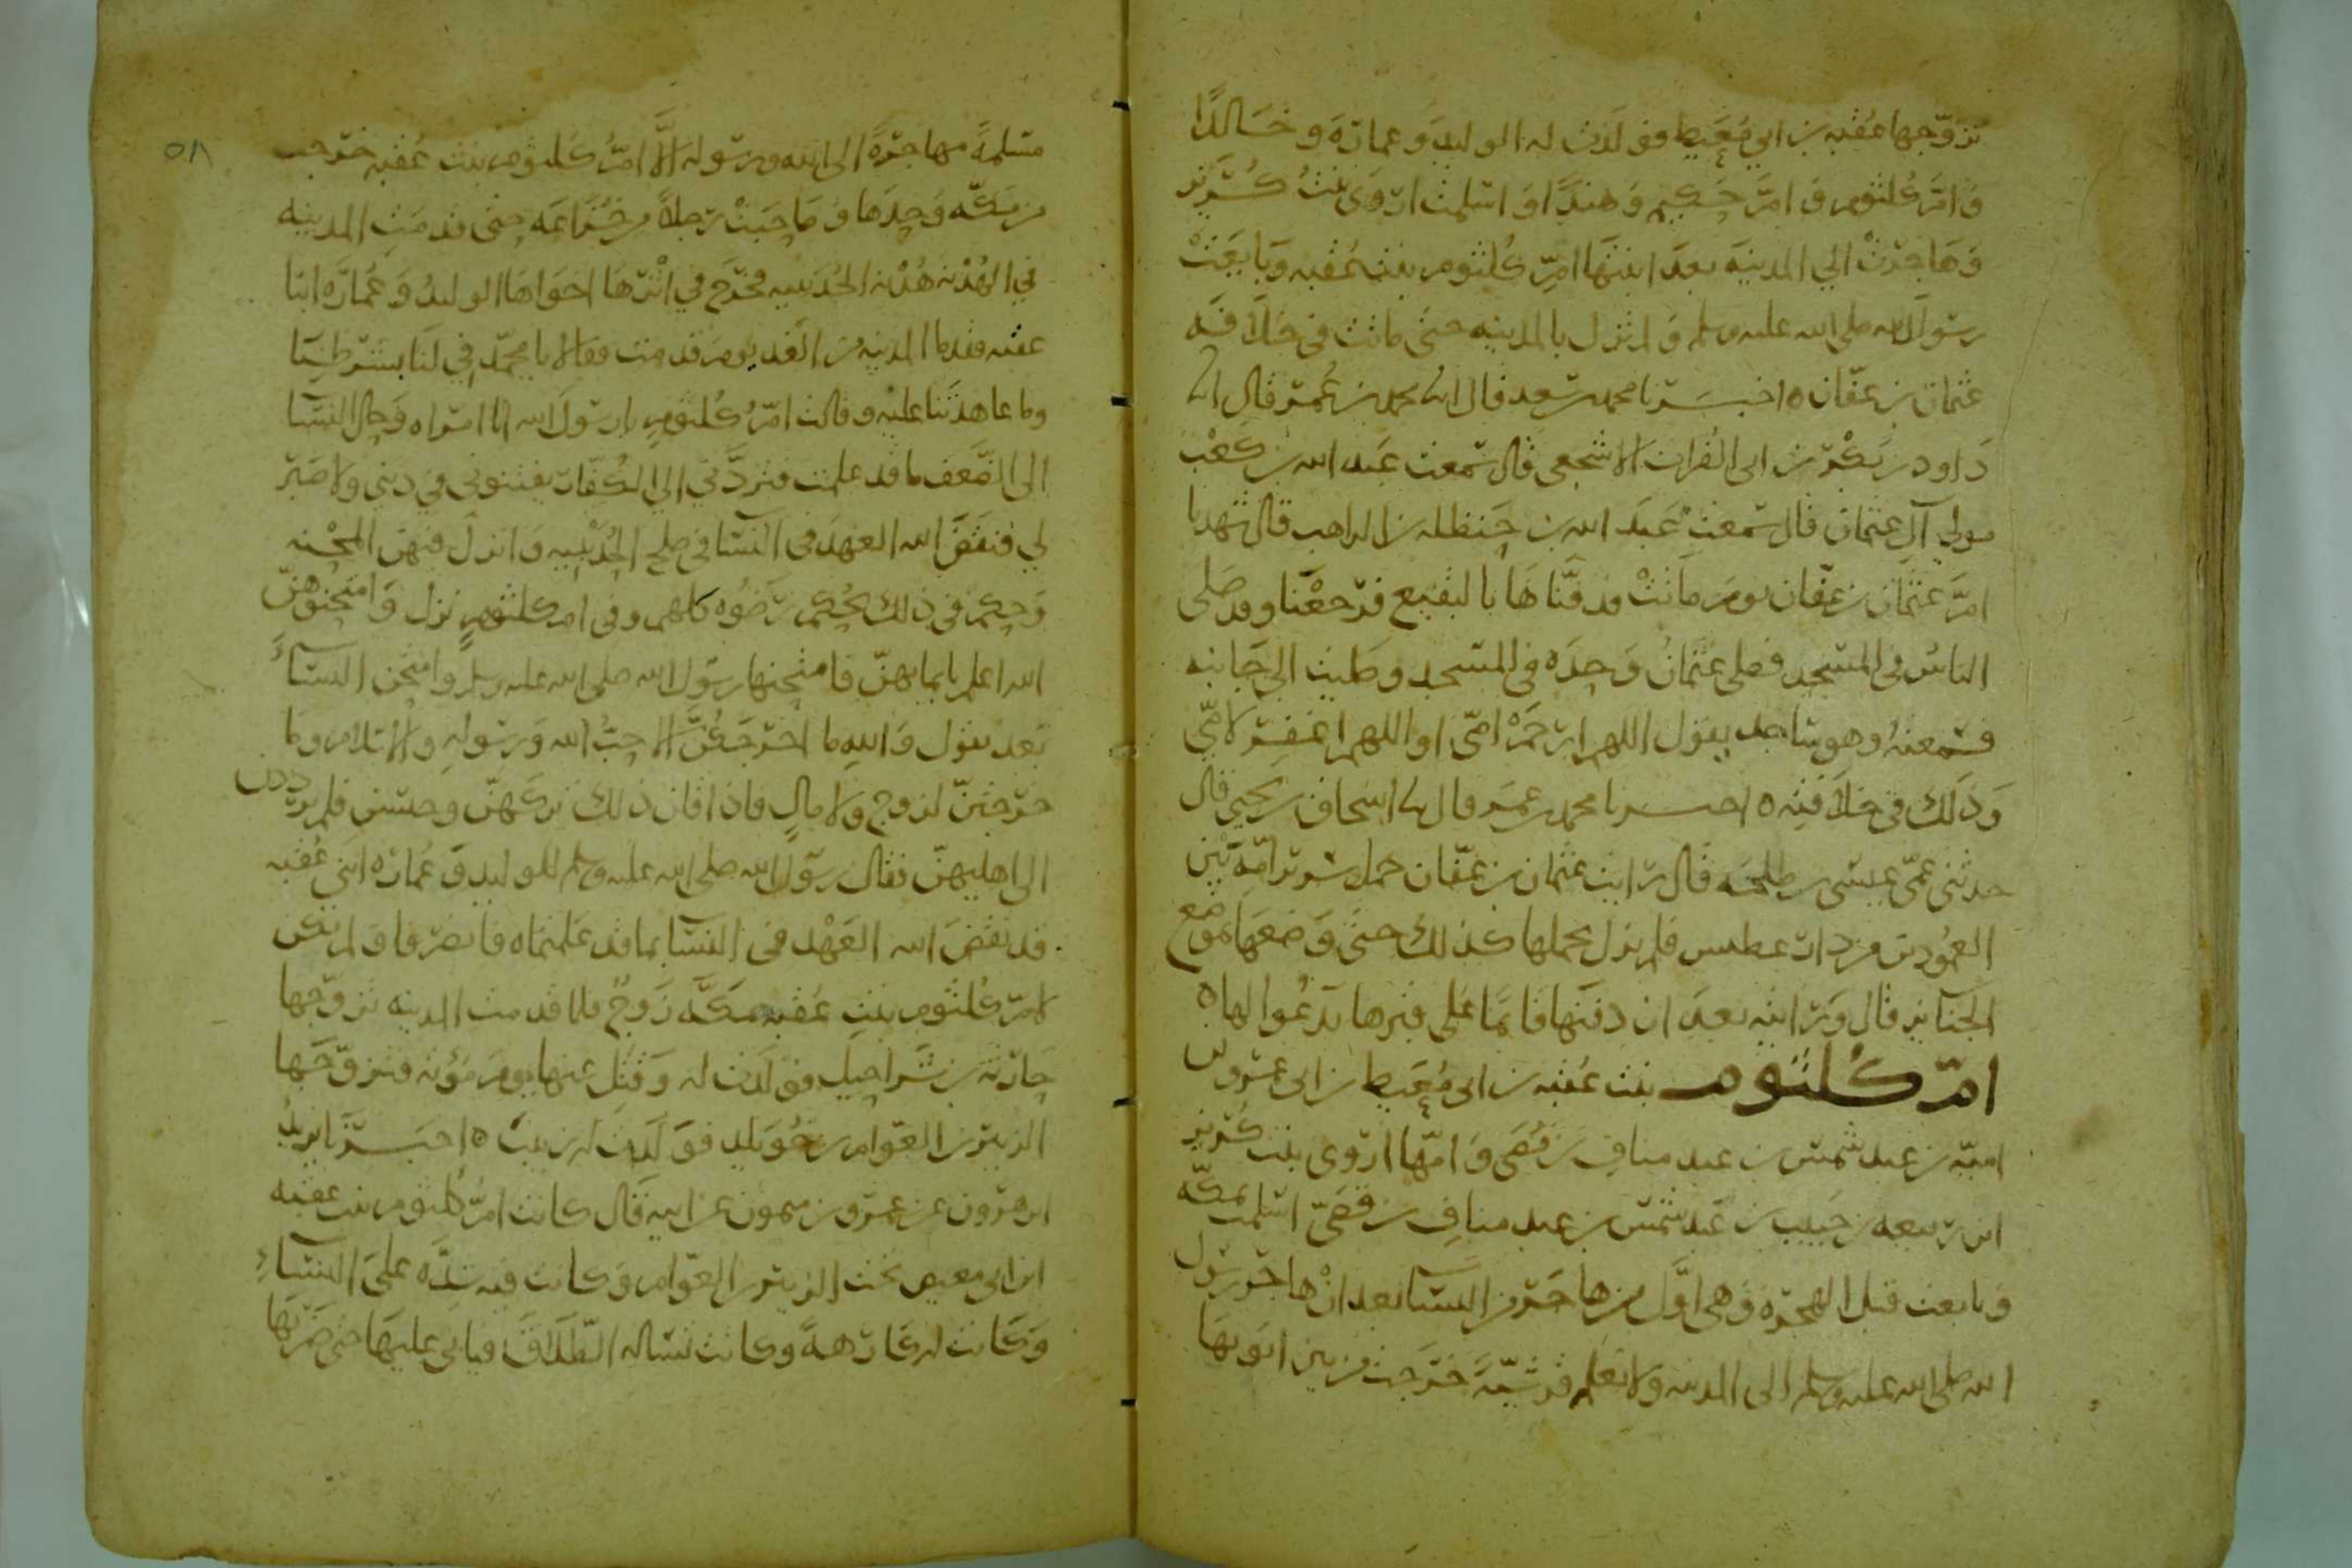 تزوّجها عُقبه بن ابي مُعَيط فولدَت له الوليدَ وعمارَةَ وخالدًا
وَامَّ كُلثوم وَامَّ حَكيم وَهندًا وَاسلمت اروَى بنتُ كُرَيز
وَهَاجرتْ الي المدينَه بعدَ ابنتهَا امِّ كُلثوم بنت عُقبه وَبَايَعَتْ
رسولَ الله صلى الله عليه وسلم وَلم تزل بالمدينه حتى ماتت في خلاَفَه
عثمان بن عفّان ٥ اخبَرَنا محمد بن سعد قال انا محمد بن عُمر قال نا
دَاود بن بَكْر بن ابى الفُرات الاشجعى قال سَمعت عَبد الله بن كَعْب
مولي آل عثمان قال سمعت عَبدَ الله بن حَنظله بن الراهب قال شهدنا
امَّ عثمان بن عفّان يومَ مَاتتْ فدفنّاهَا بالبقيع فرَجعْنا وقد صَلى
الناسُ في المسجد فصلى عثمانُ وَحدَه في المسجد وصَليت الي جَانبه
فسَمعتهُ وهو ساجد يقول اللهم ارحَمْ امّى او اللهم اغفِر لامّي
وَذَلك في خلاَفتِه ٥ اخبرنا محمد بن عمَر قال نا اسحاق بن يحيى قال
حدثنى عمّي عيسى بن طلحَه قال رَايت عثمان بن عفّان حمل سرير امّه بَيْن
العمُودين من دار عطيس فلم يزل يحملها كذلك حتى وَضعَهَا بموضع
الجنايز قال وَرَايته بعدَ ان دفنَها قايمًا عَلى قبرها يَدعُوا لها ٥
امّ كلثوم بنت عُقبه بن ابى مُعَيط بن ابى عمرو بن
اميّه بن عبد شمس بن عبد منافِ بن قُصَى وَامّها اروى بنت كُرَيز
ابن ربيعه بن حَبيب بن عَبد شَمس بن عبد منافِ بن قصَىّ اسلمت بمكّه
وَبايعت قبل الهجرَه وَهى اوَّل من هاجَر من النسآ بعد ان هاجر رسول
الله صلى الله عليه وسلم الى المدينه ولا نعلم قرشيّةً خرَجت من بين ابويهَا
٥٨
مسلمةً مهاجرَةً الى الله ورسوله الاَّ امَّ كلثوم بنت عُقبه خرجت
من مكّه وَحدَها وَصَاحبَتْ رَجلاً من خُزَاعَه حتى قدمَتِ المدينه
في الهُدْنه هُدْنه الحُدَيبيه فخرَج في اثْرهَا اخوَاهَا الوليدُ وَعُمَارَه ابنا
عقبه فقدما المدينه من الغَد يومَ قدمت فقالا يا محمّد فِ لَنا بشرطِنَا
وما عاهدتَنا عليه وقالت امّ كُلثوم يا رسُولَ الله انا امراه وَحال النسَا
الى الضّعَف ما قد علمت فترُدَّني الي الكُفّار يفتنوني في ديني ولا صَبر
لي فنَقَضَ الله العَهدَ في النسَا في صلح الحُدَيْبيه وَانزلَ فيهنّ المِحْنه
وَحكم في ذلك بحُكم رَضُوه كلهم وفي ام كلثوم نزل وَامتحنوهنّ
الله اعلم بايمانهنّ فامتحنهَا رسُول الله صلى الله عليه وسلم وامتحن النسَآءَ
بَعد يقول وَاللهِ ما اخرَجَكُنَّ الا حبُّ الله وَرسُولهِ والاسْلام وما
خرجتنّ لزوج ولا مالٍ فاذا قلن ذلك تركهنّ وحبسن فلم يردُدن
الى اهليهنّ فقال رسُول الله صلى الله عليه وسلم للوليد وَعُمارَه ابنَي عُقبه
قد نقضَ الله العَهْد في النسَآ بما قد عَلمتماه فانصَرفا وَلم يكن
لامِّ كُلثوم بنتِ عُقبه بمكَّه زَوجٌ فلما قدمت المدينه تزوّجها
حَارثه بن شَراحيل فولدت له وَقُتِل عنها يومَ مُؤته فتزوّجَها
الزبير بن العَوام بن خُوَيلد فوَلَدت له زينبَ ٥ اخبَرَنا يزيدُ
ابن هرُون عن عمرو بن ميمون عن ابيه قَال كانت امُّ كُلثوم بنت عقبه
ابن ابى معيط تحت الزبير بن العَوّام وَكانت فيه شدَّه علَى النسَآءِ
وَكَانت له كَارهةً وكانت تسَاله الطّلاَقَ فيابى عليهَا حَتى ضَرَبَها